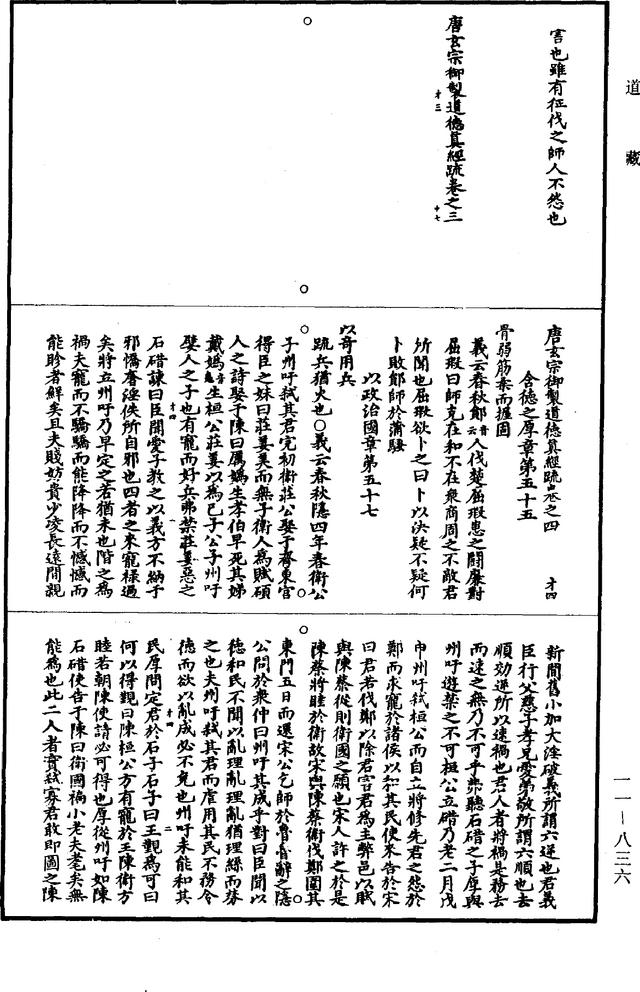 道藏
害也雖有征伐之師人不然也
唐玄宗御製道德真經疏卷之三
才三
十七
唐玄宗御製道德真經疏卷之四
才四
含德之厚章第五十五
骨弱筋柔而握固
義云春秋鄖音云人伐楚屈瑕患之鬭廉對
屈瑕曰師克在和不在衆商周之不敵君
所聞也屈瑕欲卜之曰卜以決疑不疑何
卜敗鄖師於蒲騷
以政治國章第五十七
以奇用兵
疏兵猶火也○義云春秋隱四年春衛公
子州吁弑其君完初衛莊公娶于齊東宮
得臣之妹曰莊姜美而無子衛人為賦碩
人之詩娶于陳曰厲媯生孝伯早死其娣
戴媯生桓公莊姜以為己子公子州吁
嬖人之子也有寵而好兵弗禁莊姜惡之
石碏諫曰臣聞愛子教之以義方不納于
才四
一
邪憍奢淫佚所自邪也四者之來寵祿過
矣將立州吁乃早定之若猶未也階之為
禍夫寵而不驕驕而能降降而不憾憾而
能眕者鮮矣且夫賤妨貴少凌長遠間親
新間舊小加大淫破義所謂六逆也君義
臣行父慈子孝兄愛弟敬所謂六順也去
順効逆所以速禍也君人者將禍是務去
而速之無乃不可乎弗聽石碏之子厚與
州吁遊禁之不可桓公立碏乃老二月戊
申州吁弑桓公而自立將修先君之怨於
鄭而求寵於諸侯以和其民使來告於宋
曰君若伐鄭以除君害君為主弊邑以賦
與陳蔡從則衛國之願也宋人許之於是
陳蔡將睦於衛故宋與陳蔡衛伐鄭圍其
東門五日而還宋公乞師於魯魯辭之隱
公問於衆仲曰州吁其成乎對曰臣聞以
德和民不聞以亂理亂理亂猶理絲而棼
之也夫州吁弑其君而虐用其民不務令
德而欲以亂成必不免也州吁未能和其
才四
二
民厚問定君於石子石子曰王覲為可曰
何以得覲曰陳桓公方有寵於王陳衛方
睦若朝陳使請必可得也厚從州吁如陳
石碏使告于陳曰衛國禍小老夫耄矣無
能為也此二人者實弑寡君敢即圖之陳
一一－八三六